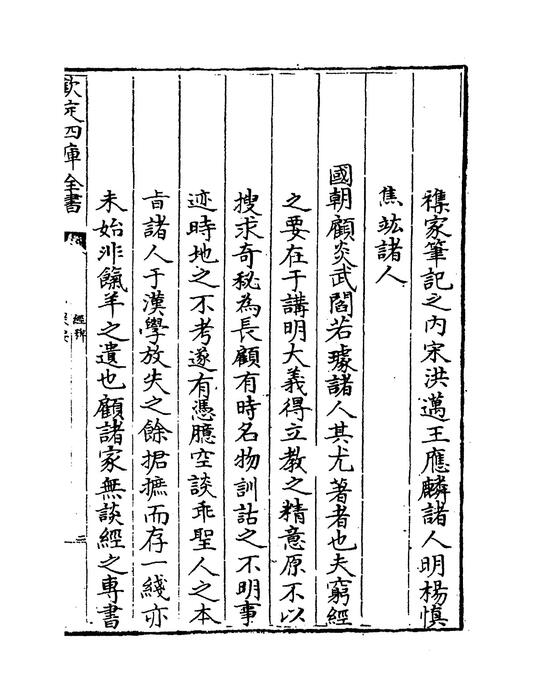 襍家筆記之内宋洪邁王應麟諸人明楊慎
焦竑諸人
國朝顧炎武閻若璩諸人其尤著者也夫窮經
之要在于講明大義得立教之精意原不以
搜求奇秘為長顧有時名物訓詁之不明事
迹時地之不考遂有憑臆空談乖聖人之本
㫖諸人于漢學放失之餘捃摭而存一綫亦
未始非餼羊之遺也顧諸家無談經之專書
欽定四庫全書
三